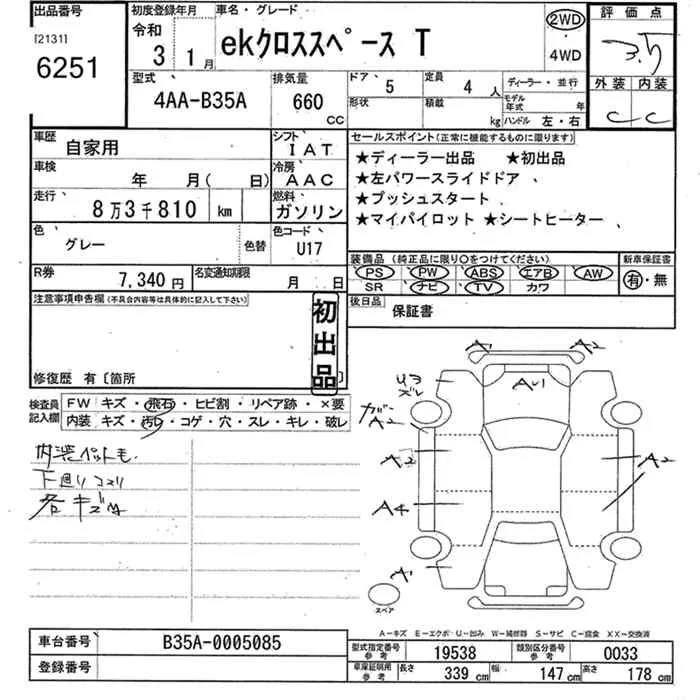 出品番号 初度登録年月 車名・グレード 2WD 評価点
[2131] 令和
6251 3年 1月 ekクロススペース T 4WD 3.5
型式 排気量 ドア 5 定員 4人 ディーラー・並行 外装 内装
4AA-B35A 660cc 形状 積載 kg モデル年式 年 ハンドル 左・右 C C
車歴 自家用 シフト IAT セールスポイント(正常に機能するものに限ります)
車検 年 月( 日) 冷房 AAC ★ディーラー出品 ★初出品
★左パワースライドドア、
走行 8万3千810 km 燃料 ガソリン ★プッシュスタート
★マイパイロット ★シートヒーター
色 グレー 色替 色コード U17
装備品(純正品に限り○をつけてください) 新車保証書
R券 7,340円 名変通知期限 月 日 PS PW ABS エアB AW 有・無
SR ナビ TV カワ
注意事項申告欄(不具合内容等は具体的に記入して下さい) 後日品 保証書
初出品
修復歴 有〔箇所 〕
検査員記入欄 FW キズ・飛石・ヒビ割・リペア跡・×要
内装 キズ・汚レ・コゲ・穴・スレ・キレ・破レ
下廻りコスリ
A1 A2
A2
A2 A2
A4
A1
スペア
A−キズ E−エクボ U−凹み W−補修跡 S−サビ C−腐食 XX−交換済
車台番号 B35A-0005085 型式指定番号 参考 19538 類別区分番号 参考 0033
登録番号 車庫証明用 参考 長さ 339cm 幅 147cm 高さ 178cm